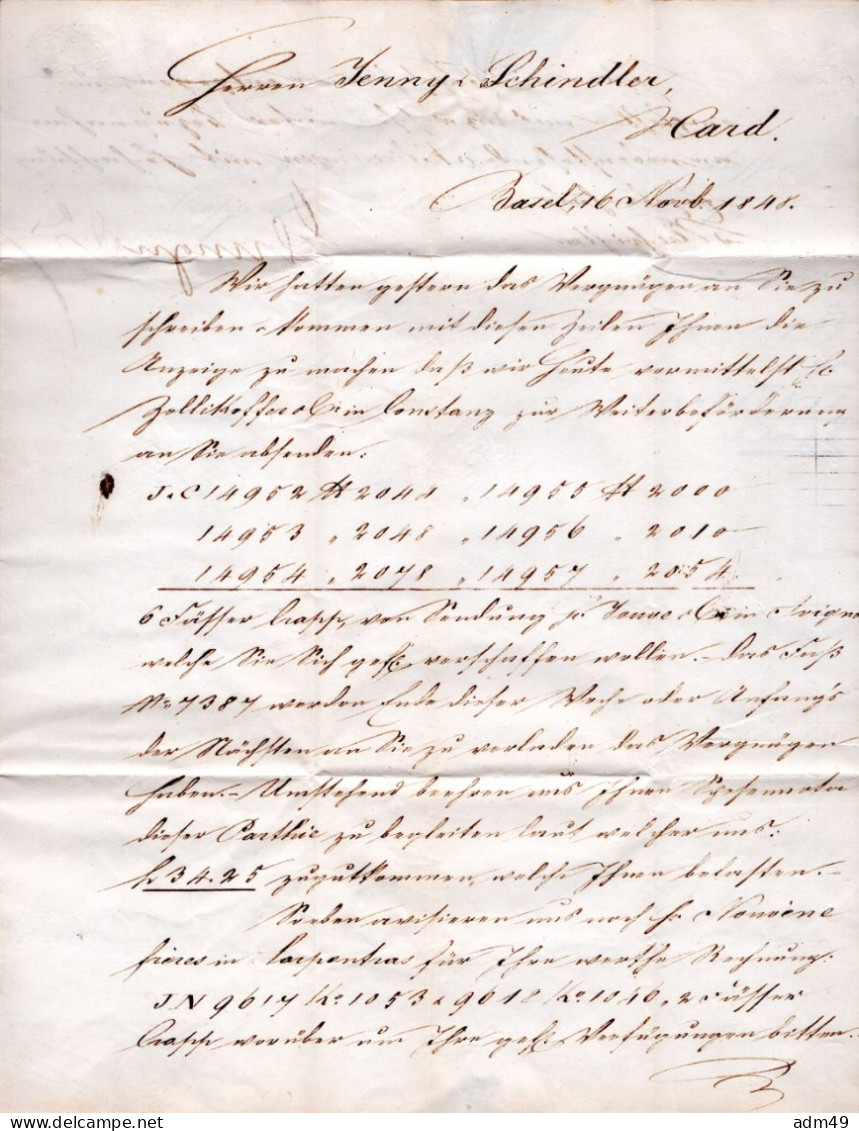 Herren Jenny & Schindler,
Hard.
Basel, 16 Novb. 1848.
Wir hatten gestern das Vergnügen an Sie zu
schreiben & kommen mit diesen Zeilen Ihnen die
Anzeige zu machen daß wir Heute vermittelst H.
Zollikoffer & C. in Constanz zur Weiterbeförderung
an Sie absenden:
J.C 14952 ℔ 2044 „ 14955 ℔ 2000
14953 „ 2048 „ 14956 „ 2010
14954 „ 2078 „ 14957 „ 2054
6 Fässer Crapp, von Sendung H. & Co in Avignon
welche Sie Sich gefl. verschaffen wollen. – Das Faß
No 7387 werden Ende dieser Woche oder Anfang's
der Nächsten an Sie zu verladen das Vergnügen
haben. – Umstehend beehren uns Ihnen Spesennota
dieser Parthie zu begleiten laut welcher uns:
34.25 zugutkommen, welche Ihnen belasten. –
Soeben avisieren uns noch H.
frères in Carpentras für Ihre werthe Rechnung:
J N 9617 Ko. 1053 & 9618 Ko. 1046, 2 Fässer
Crapp worüber um Ihre gefl. Verfügungen bitten. –
adm49